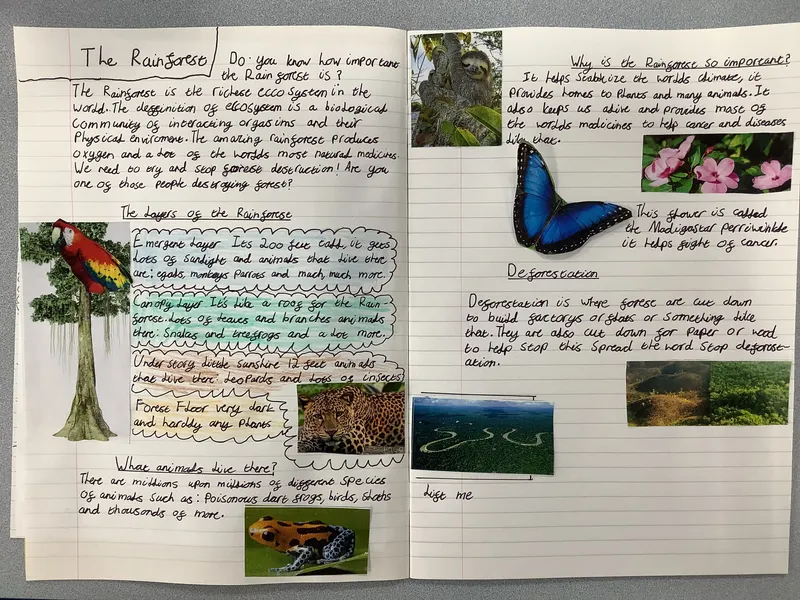 The Rainforest
Do you know how important
the Rainforest is?
The Rainforest is the richest ecco system in the
world. The deffinition of eccosystem is a biological
community of interacting orgasims and their
Physical enviroment. The amazing rainforest produces
oxygen and a lot of the worlds most natural medicines.
We need to try and stop forest destruction! Are you
one of those people destroying forest?
The Layers of the Rainforest
Emergent Layer It's 200 feet tall, it gets
Lots of sunlight and animals that live there
are: egals, monkeys Parrots and much, much more.
Canopy Layer It's like a roof for the Rain-
forest. Lots of leaves and branches animals
there: Snakes and treefrogs and a lot more.
Under story little sunshine 12 feet animals
that live there: Leopards and Lots of insects
Forest Floor very dark
and harddy any Plants
What animals live there?
There are millions upon millions of different species
of animals such as: Poisonous dart frogs, birds, sloths
and thousands of more.
Why is the Rainforest so important?
It helps stabilize the worlds climate, it
provides homes to Plants and many animals. It
also keeps us alive and provides most of
the worlds medicines to help cancer and diseases
like that.
This flower is called
the Madigastar perriwinkle
it helps fight of cancer.
Deforestation
Deforestation is where forese are cut down
to build factorys or flats or something like
that. They are also cut down for Paper or wood
to help stop this Spread the word stop deforest-
ation.
Lift me